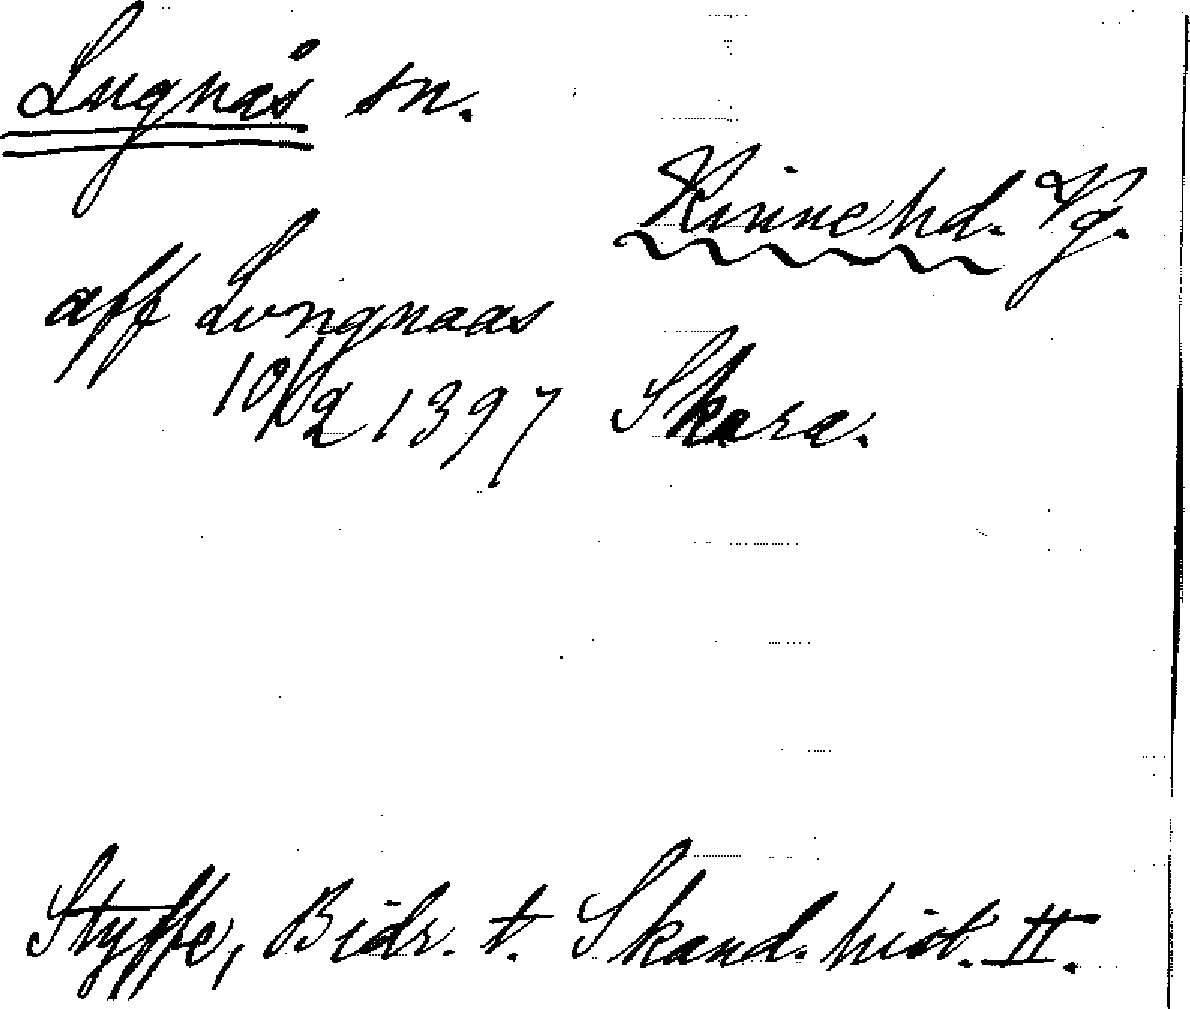 Lugnås sn.
Kinne hd. Vg.
aff Lungnaas
10/2 1397 Skara.
Styffe, Bidr. t. Skand. hist. II.